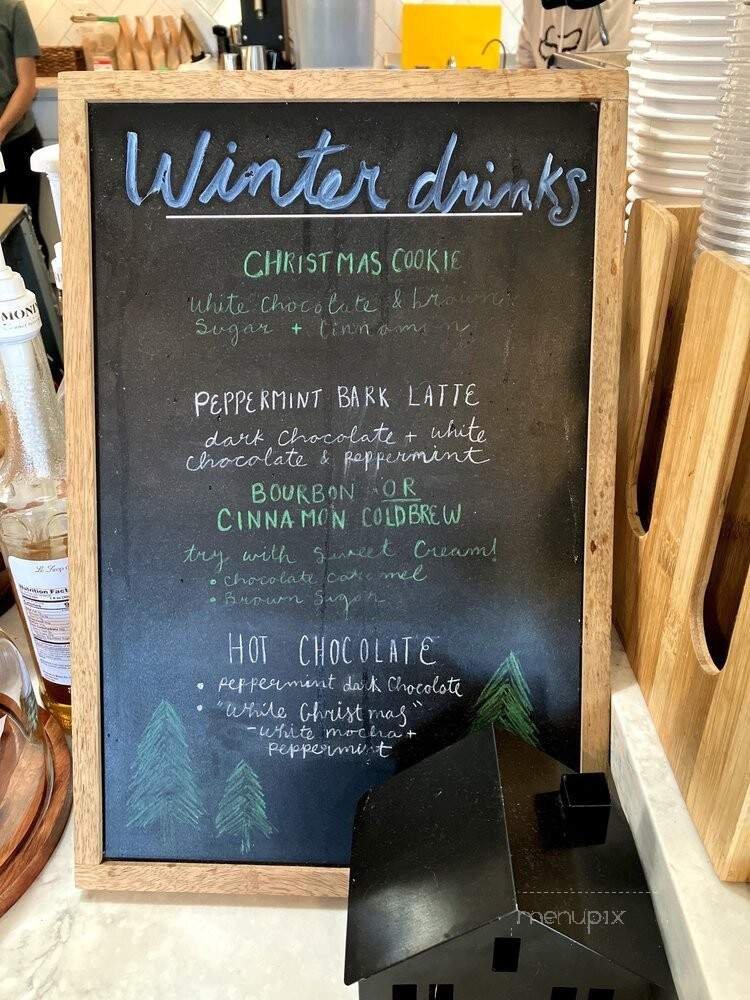 Winter drinks
CHRISTMAS COOKIE
white chocolate & brown
Sugar + Cinnamon
PEPPERMINT BARK LATTE
dark chocolate + white
chocolate & peppermint
BOURBON OR
CINNAMON COLDBREW
try with Sweet Cream!
• chocolate caramel
• Brown Sugar
HOT CHOCOLATE
• peppermint dark Chocolate
• "White Christmas"
- white mocha +
peppermint
MONI
Nutrition Fact
menupix